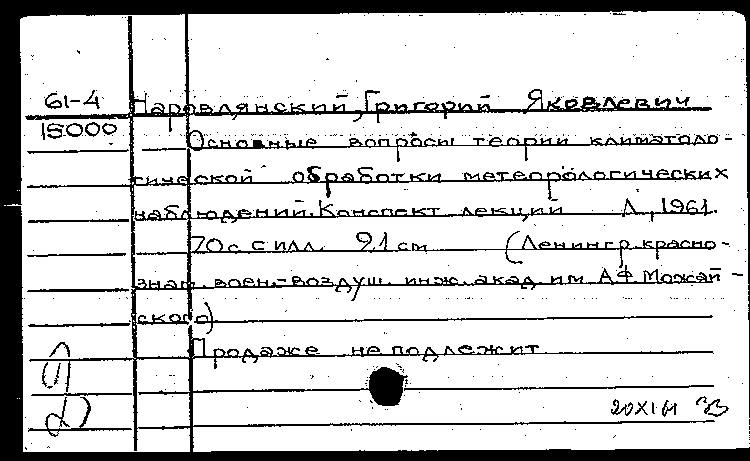 61-4 Наровлянский, Григорий Яковлевич
15000 Основные вопросы теории климатоло-
гической обработки метеорологических
наблюдений. Конспект лекций Л., 1961.
70 с с илл. 21 см (Ленингр. красно-
знам. воен.-воздуш. инж. акад. им А.Ф. Можай-
ского)
Продаже не подлежит